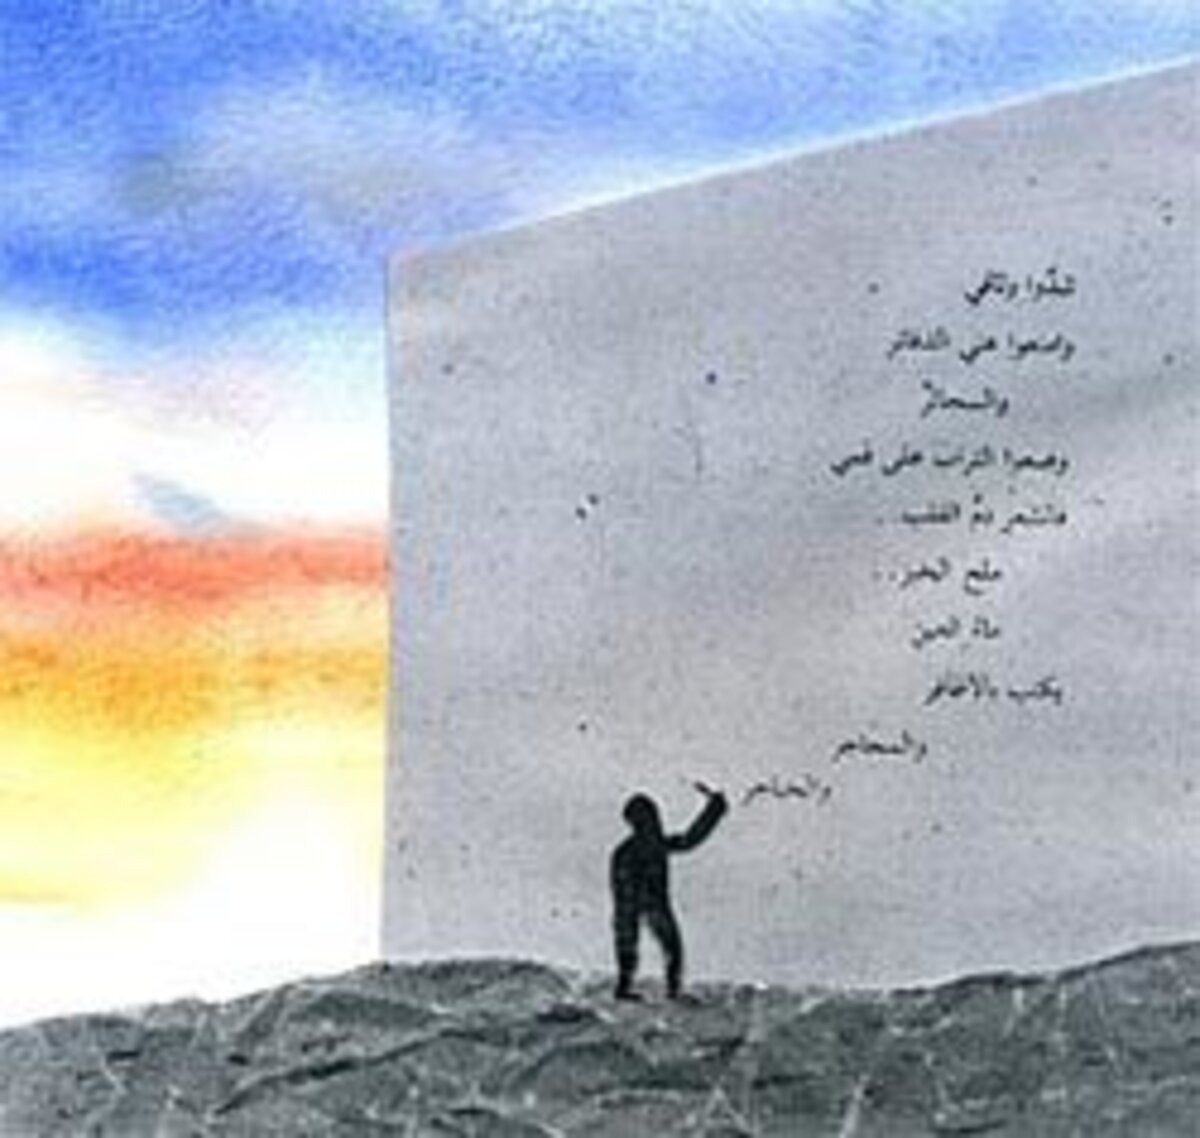 شدّوا وثاقي
وامنعوا عني الدفاتر
والسجائرْ
وضعوا التراب على فمي
فالشعر دمُ القلب..
ملح الخبز..
ماء العين
يكتب بالأظافر
والمحاجر
والخناجر